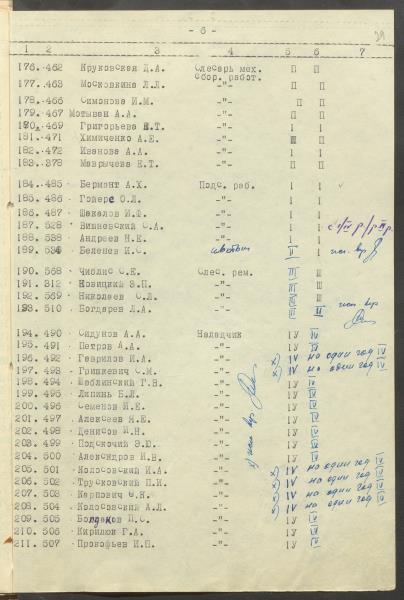 - 6 -
29
1 2 3 4 5 6 7
176. .462 Круковская Д.А. Слесарь мех. П П
Сбор. работ.
177. .463 Московкина Л.Л. -"- П П
178. .466 Симонова И.М. -"- П П
179. .467 Мотыван А.А. -"- П П
180. .469 Григорьева Е.Т. -"- I I
181. .471 Химиченко А.Е. -"- Ш П
182. .472 Иванова А.А. -"- I I
183. .378 Маврычева Е.Т. -"- П П
184. .485 Бермант А.Х. Подс. раб. I I
185. .486 Гойерс О.Л. -"- I I
186. .487 Шакалов И.Ф. -"- I I
187. .528 Вишневский С.А. -"- I I
188. .538 Андреев Н.Е. -"- I I
189. .534 Беленев И.С. II I исп. вр
190. .568 Чиблис С.Е. Слес. рем. III Ш
191. .312 Новицкий З.П. -"- III Ш
192. .569 Николаев С.Л. -"- III Ш
193. .510 Богдарев Л.А. -"- III исп. вр
194. .490 Сидунов А.А. Наладчик IУ IV
195. .491 Петров А.А. -"- IУ IV
196. .492 Гаврилов И.А. -"- IV на один год IV
197. .493 Гришкевич С.М. -"- IV на один год IV
198. .494 Шаблинский Г.В. -"- IУ IV
199. .495 Липинь Б.Л. -"- IУ IV
200. .496 Семенов И.Е. -"- IУ IV
201. .497 Алексеев Н.Е. -"- IУ IV
202. .498 Денисов И.Н. -"- IУ IV
203. .499 Подскочий Э.Ю. -"- IУ IV
204. .500 Александров Н.В. -"- IУ IV
205. .501 Колосовский И.А. -"- IV на один год IV
206. .502 Трусковский П.И. -"- IV на один год IV
207. .503 Карпович Ф.Я. -"- IV на один год IV
208. .504 Колосовский А.Л. -"- IV на один год IV
209. .505 Болдаков П.С. -"- IУ IV
210. .506 Кирилюк Г.А. -"- IУ IV
211. .507 Прокофьев И.П. -"- IУ IV